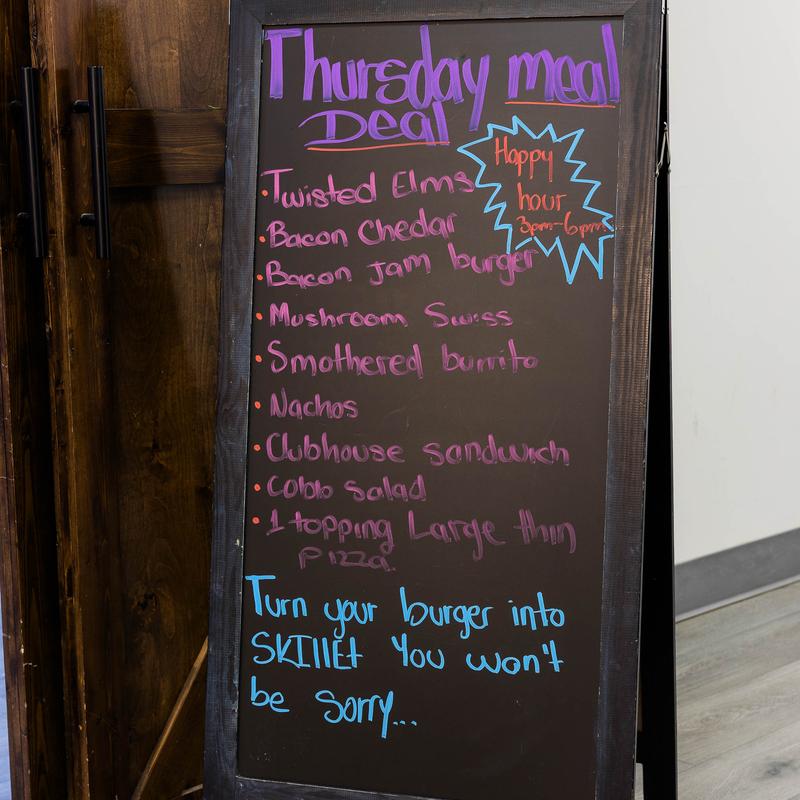 Thursday meal
Deal
Happy
hour
3pm-6pm
• Twisted Elms
• Bacon Chedar
• Bacon Jam burger
• Mushroom Swiss
• Smothered burrito
• Nachos
• Clubhouse sandwich
• Cobb Salad
• 1 topping Large thin
Pizza.
Turn your burger into
SKIllEt You won't
be Sorry...